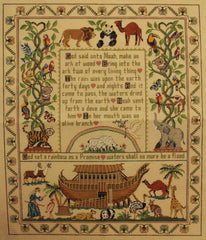 God said unto Noah, make an
ark of wood ♥ Bring into the
ark two of every living thing ♥
The rain was upon the earth
forty days and nights ♥ And it
came to pass, the waters dried
up from the earth ♥ Noah sent
forth a dove and she came to
him ♥ In her mouth was an
olive branch ♥
God set a rainbow as a Promise ♥ waters shall no more be a flood